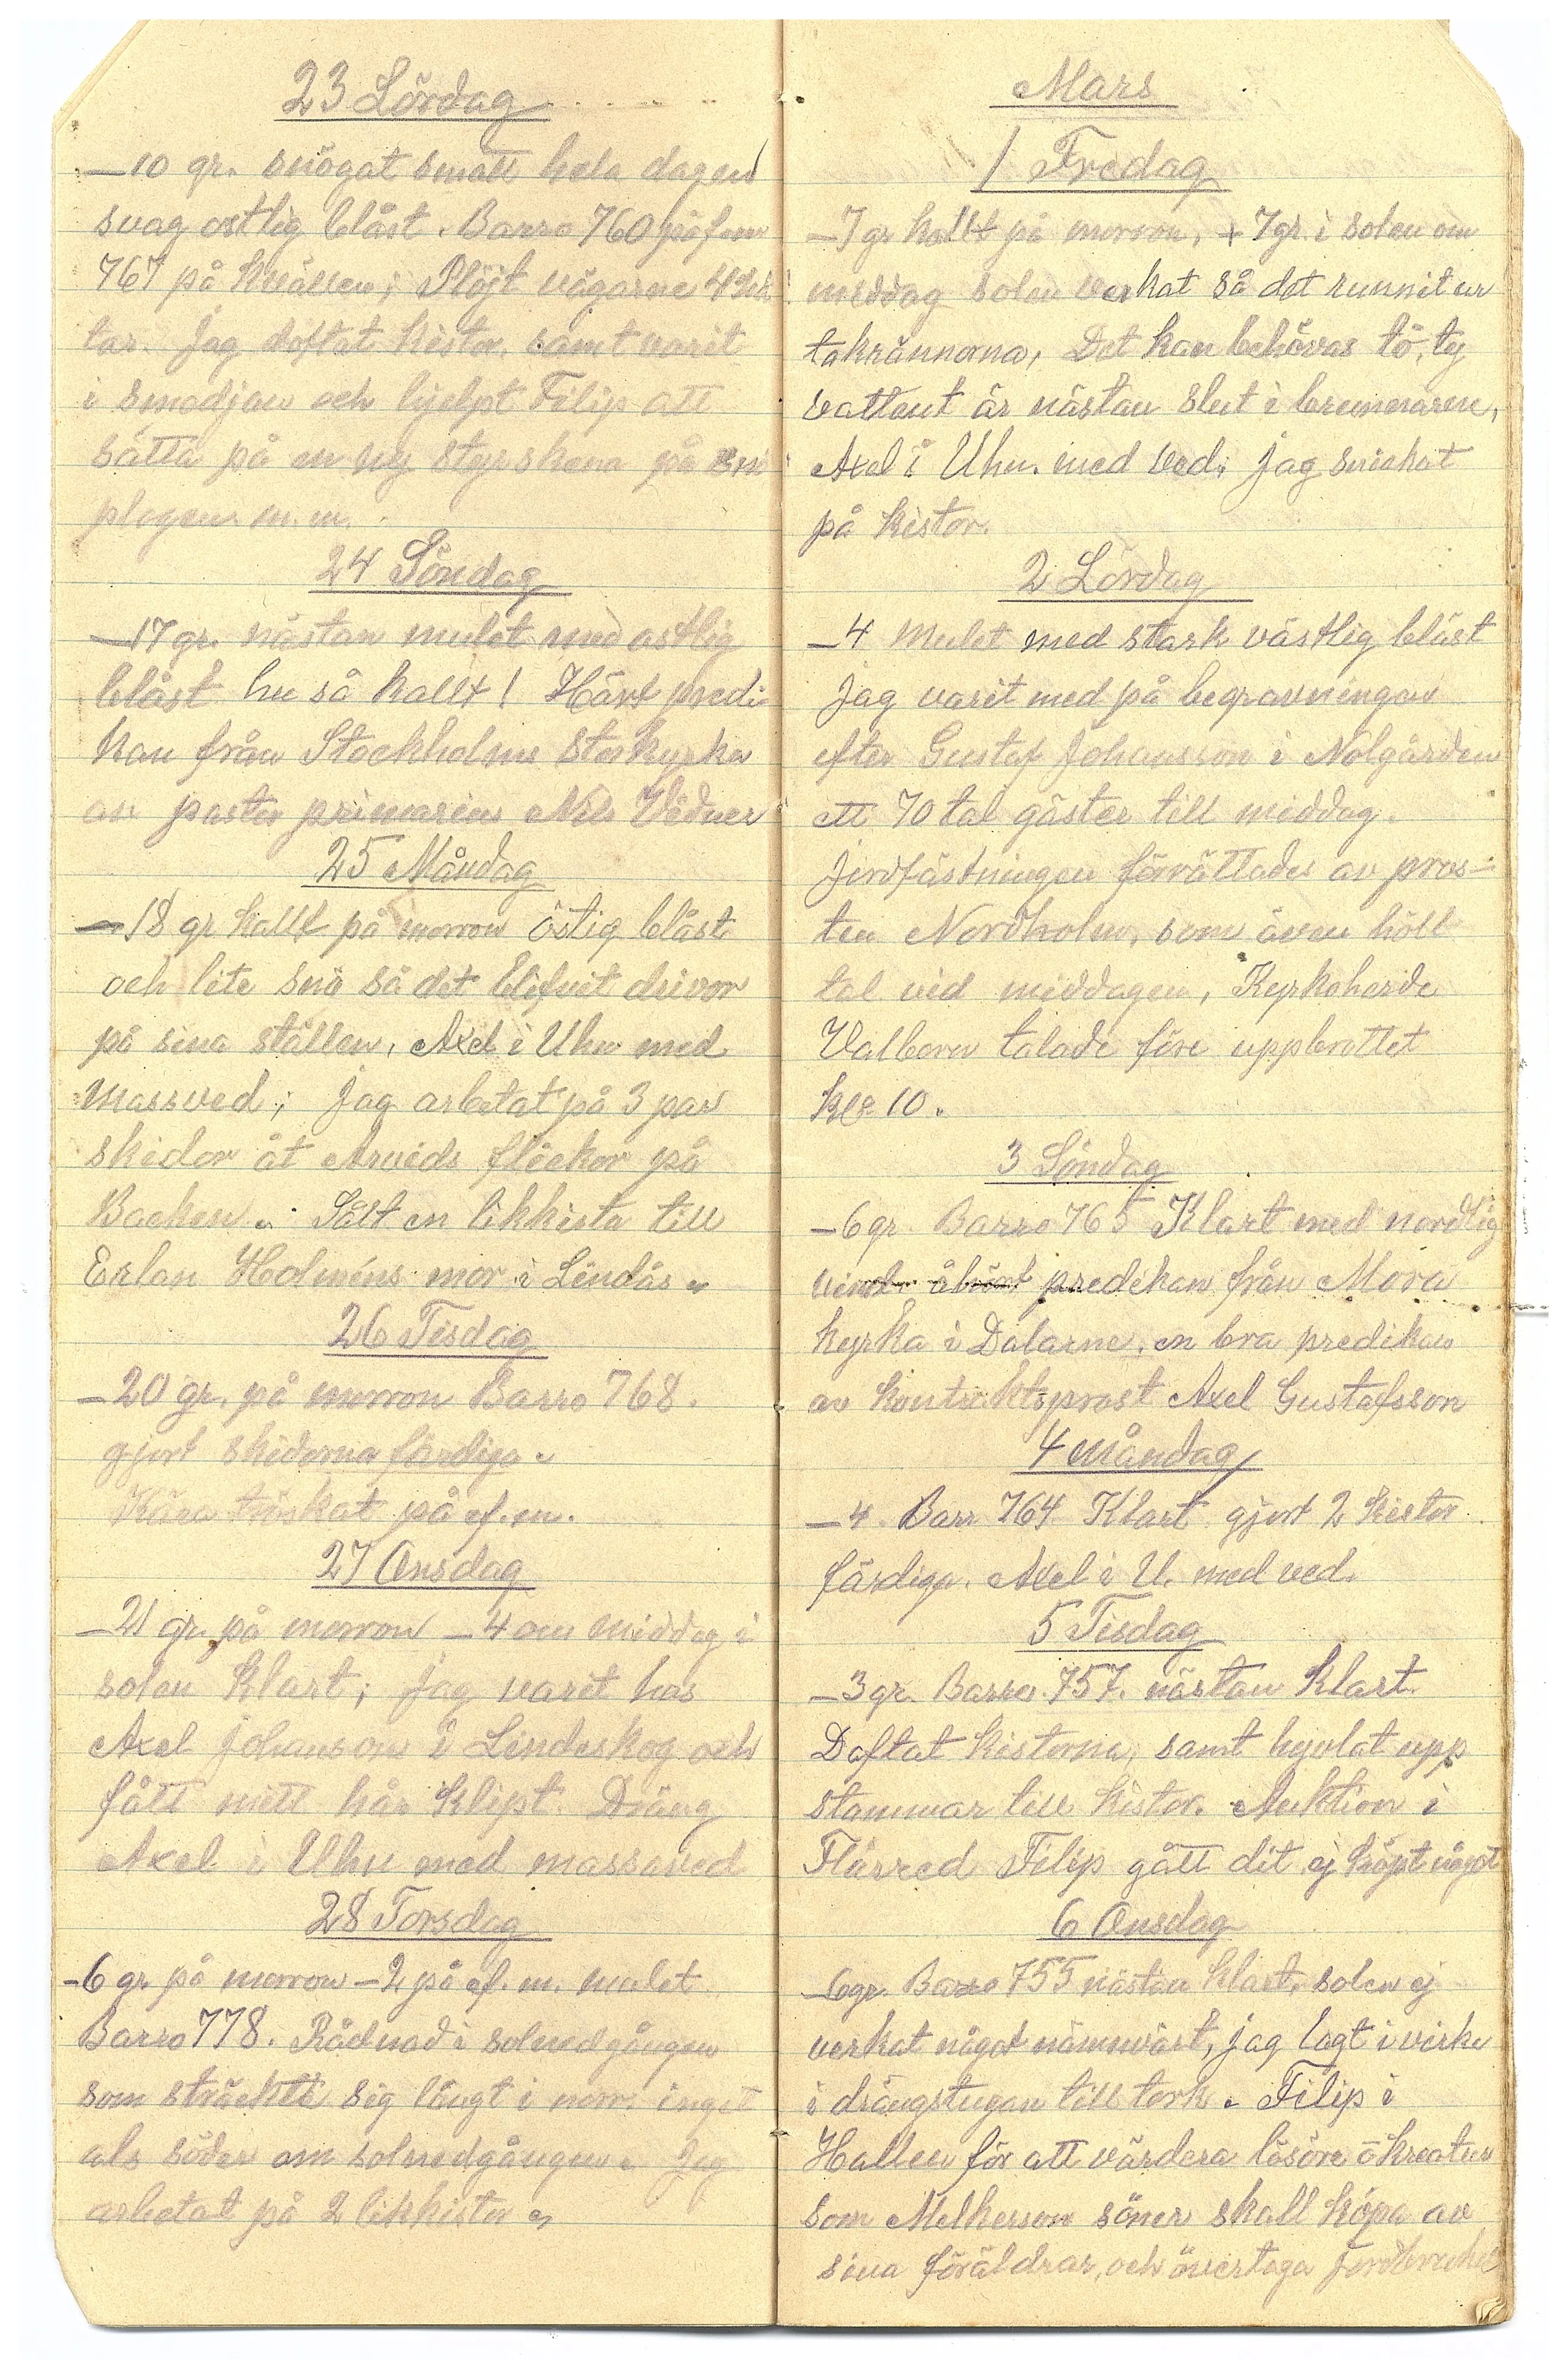 23 Lördag
—10 gr. snögat smått hela dagen
svag ostlig blåst. Barro 760 på f.m
767 på kvällen; Plöjt vägarne 4
tar. Jag doftat kistor, samt varit
i smedjan och hjelpt Filip att
sätta på en ny styrskena på snö
plogen m.m.
24 Söndag
—17 gr. nästan mulet med ostlig
blåst hu så kallt! Hört predi-
kan från Stockholms Storkyrka
av pastor primarius Nils Vidner
25 Måndag
—18 gr kallt på morron östig blåst
och lite snö så det blifvit drivor
på sina ställen, Axel i Uhu med
massved; Jag arbetat på 3 par
skidor åt Arvids flickor på
Backen. Sålt en likkista till
Erlan Holmíns mor i Lindås
26 Tisdag
—20 gr. på morron Barro 768.
gjort skidorna färdiga.
Kåra tröskat på ef.m.
27 Onsdag
—21 gr. på morron —4 om middag i
solen klart; jag varit hos
Axel Johanson i Lindeskog och
fått mitt hår klipt. Dräng
Axel i Uhu med massaved
28 Torsdag
-6 gr. på morron —2 på ef.m. mulet
Barro 778. Rådnad i solnedgången
som sträckte sig långt i norr. inget
als söder om solnedgången. Jag
arbetat på 2 likkistor
Mars
1 Fredag
—7 gr kallt på morron, +7gr. i solen om
middag solen verkat så det runnit ur
takrännorna, Det kan behövas tö, ty
vattent är nästan slut i brunnarne,
Axel i Uhu. med ved; jag snickat
på kistor.
2 Lördag
—4 mulet med stark västlig blåst
Jag varit med på begravningen
efter Gustaf Johansson i Nolgården
ett 70 tal gäster till middag.
Jordfästningen förrättades av pros-
ten Nordholm, som även höll
tal vid middagen, Kyrkoherde
Valborn talade före uppbrottet
kl. 10.
3 Söndag
—6 gr. Barro 765 Klart med nordlig
vind predikan från Mora
kyrka i Dalarne, en bra predikan
av kontraktsprost Axel Gustafsson
4 Måndag
—4. Barr 764 Klart gjort 2 kistor
färdiga. Axel i U. med ved.
5 Tisdag
—3 gr. Barro 757. nästan klart.
Doftat kistorna, samt hyvlat upp
stammar till kistor. Auktion i
Flårred Filip gått dit ej köpt något
6 Onsdag
—6gr. Barro 755 nästan klart. solen ej
verkat något nämnvärt, jag lagt i virke
i drängstugan till tork. Filip i
Hallen för att värdera lösöre o kreatur
som Melkerson söner skall köpa av
sina föräldrar, och övertaga jordbruket